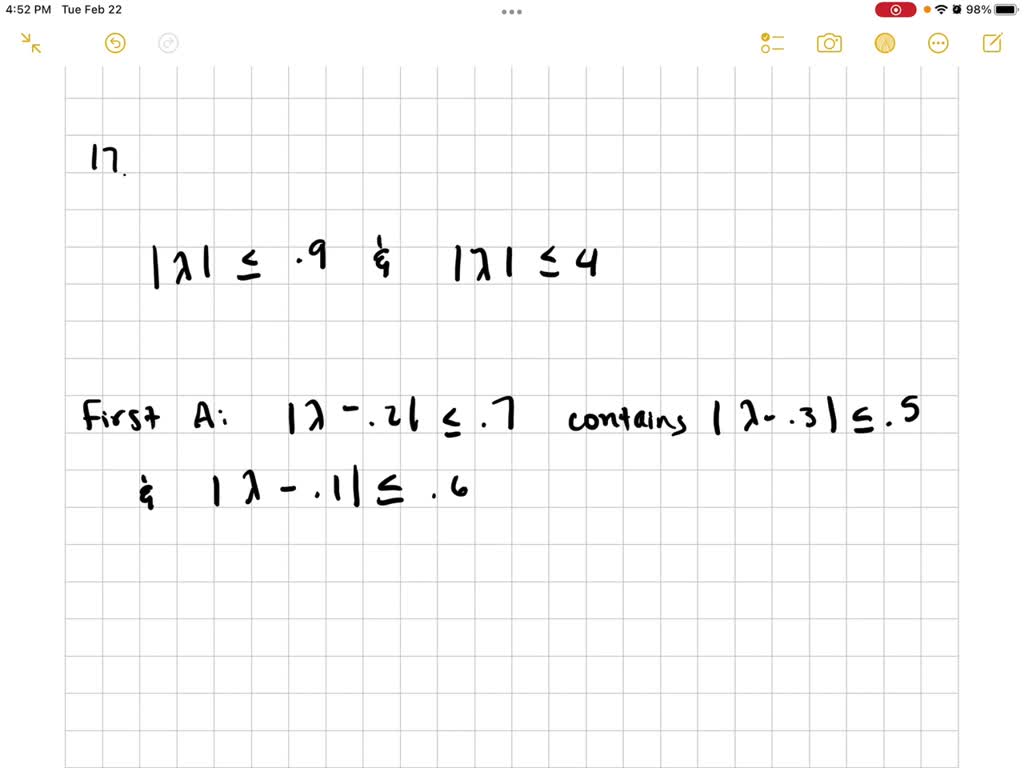 4:52 PM Tue Feb 22
98%
17.
|λ| ≤ .9 & |λ| ≤ 4
First A: |λ - .2| ≤ .7 contains |λ - .3| ≤ .5
& |λ - .1| ≤ .6